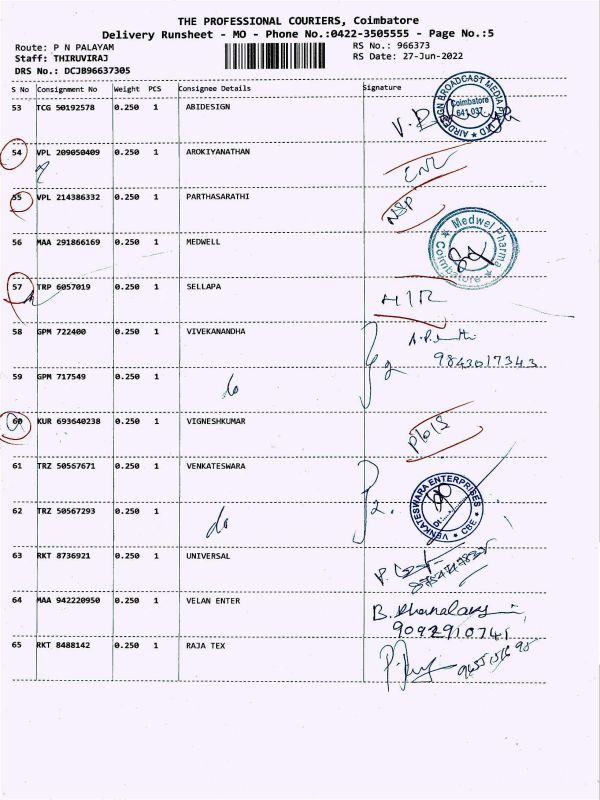 THE PROFESSIONAL COURIERS, Coimbatore
Delivery Runsheet - MO - Phone No.:0422-3505555 - Page No.:5
Route: P N PALAYAM
RS No.: 966373
Staff: THIRUVIRAJ
RS Date: 27-Jun-2022
DRS No.: DCJB96637305
S No Consignment No Weight PCS Consignee Details Signature
53 TCG 50192578 0.250 1 ABIDESIGN
AIRDESIGN BROADCAST MEDIA PVT LTD Coimbatore 641 037
54 VPL 209050409 0.250 1 AROKIYANATHAN
55 VPL 214386332 0.250 1 PARTHASARATHI
NSP
56 MAA 291866169 0.250 1 MEDWELL
Medwel Pharma Coimbatore
57 TRP 6057019 0.250 1 SELLAPA
58 GPM 722400 0.250 1 VIVEKANANDHA
9843017343
59 GPM 717549 0.250 1 do
60 KUR 693640238 0.250 1 VIGNESHKUMAR
61 TRZ 50567671 0.250 1 VENKATESWARA
VENKATESWARA ENTERPRISES CBE
62 TRZ 50567293 0.250 1 do
63 RKT 8736921 0.250 1 UNIVERSAL
64 MAA 942220950 0.250 1 VELAN ENTER
9092910741
65 RKT 8488142 0.250 1 RAJA TEX